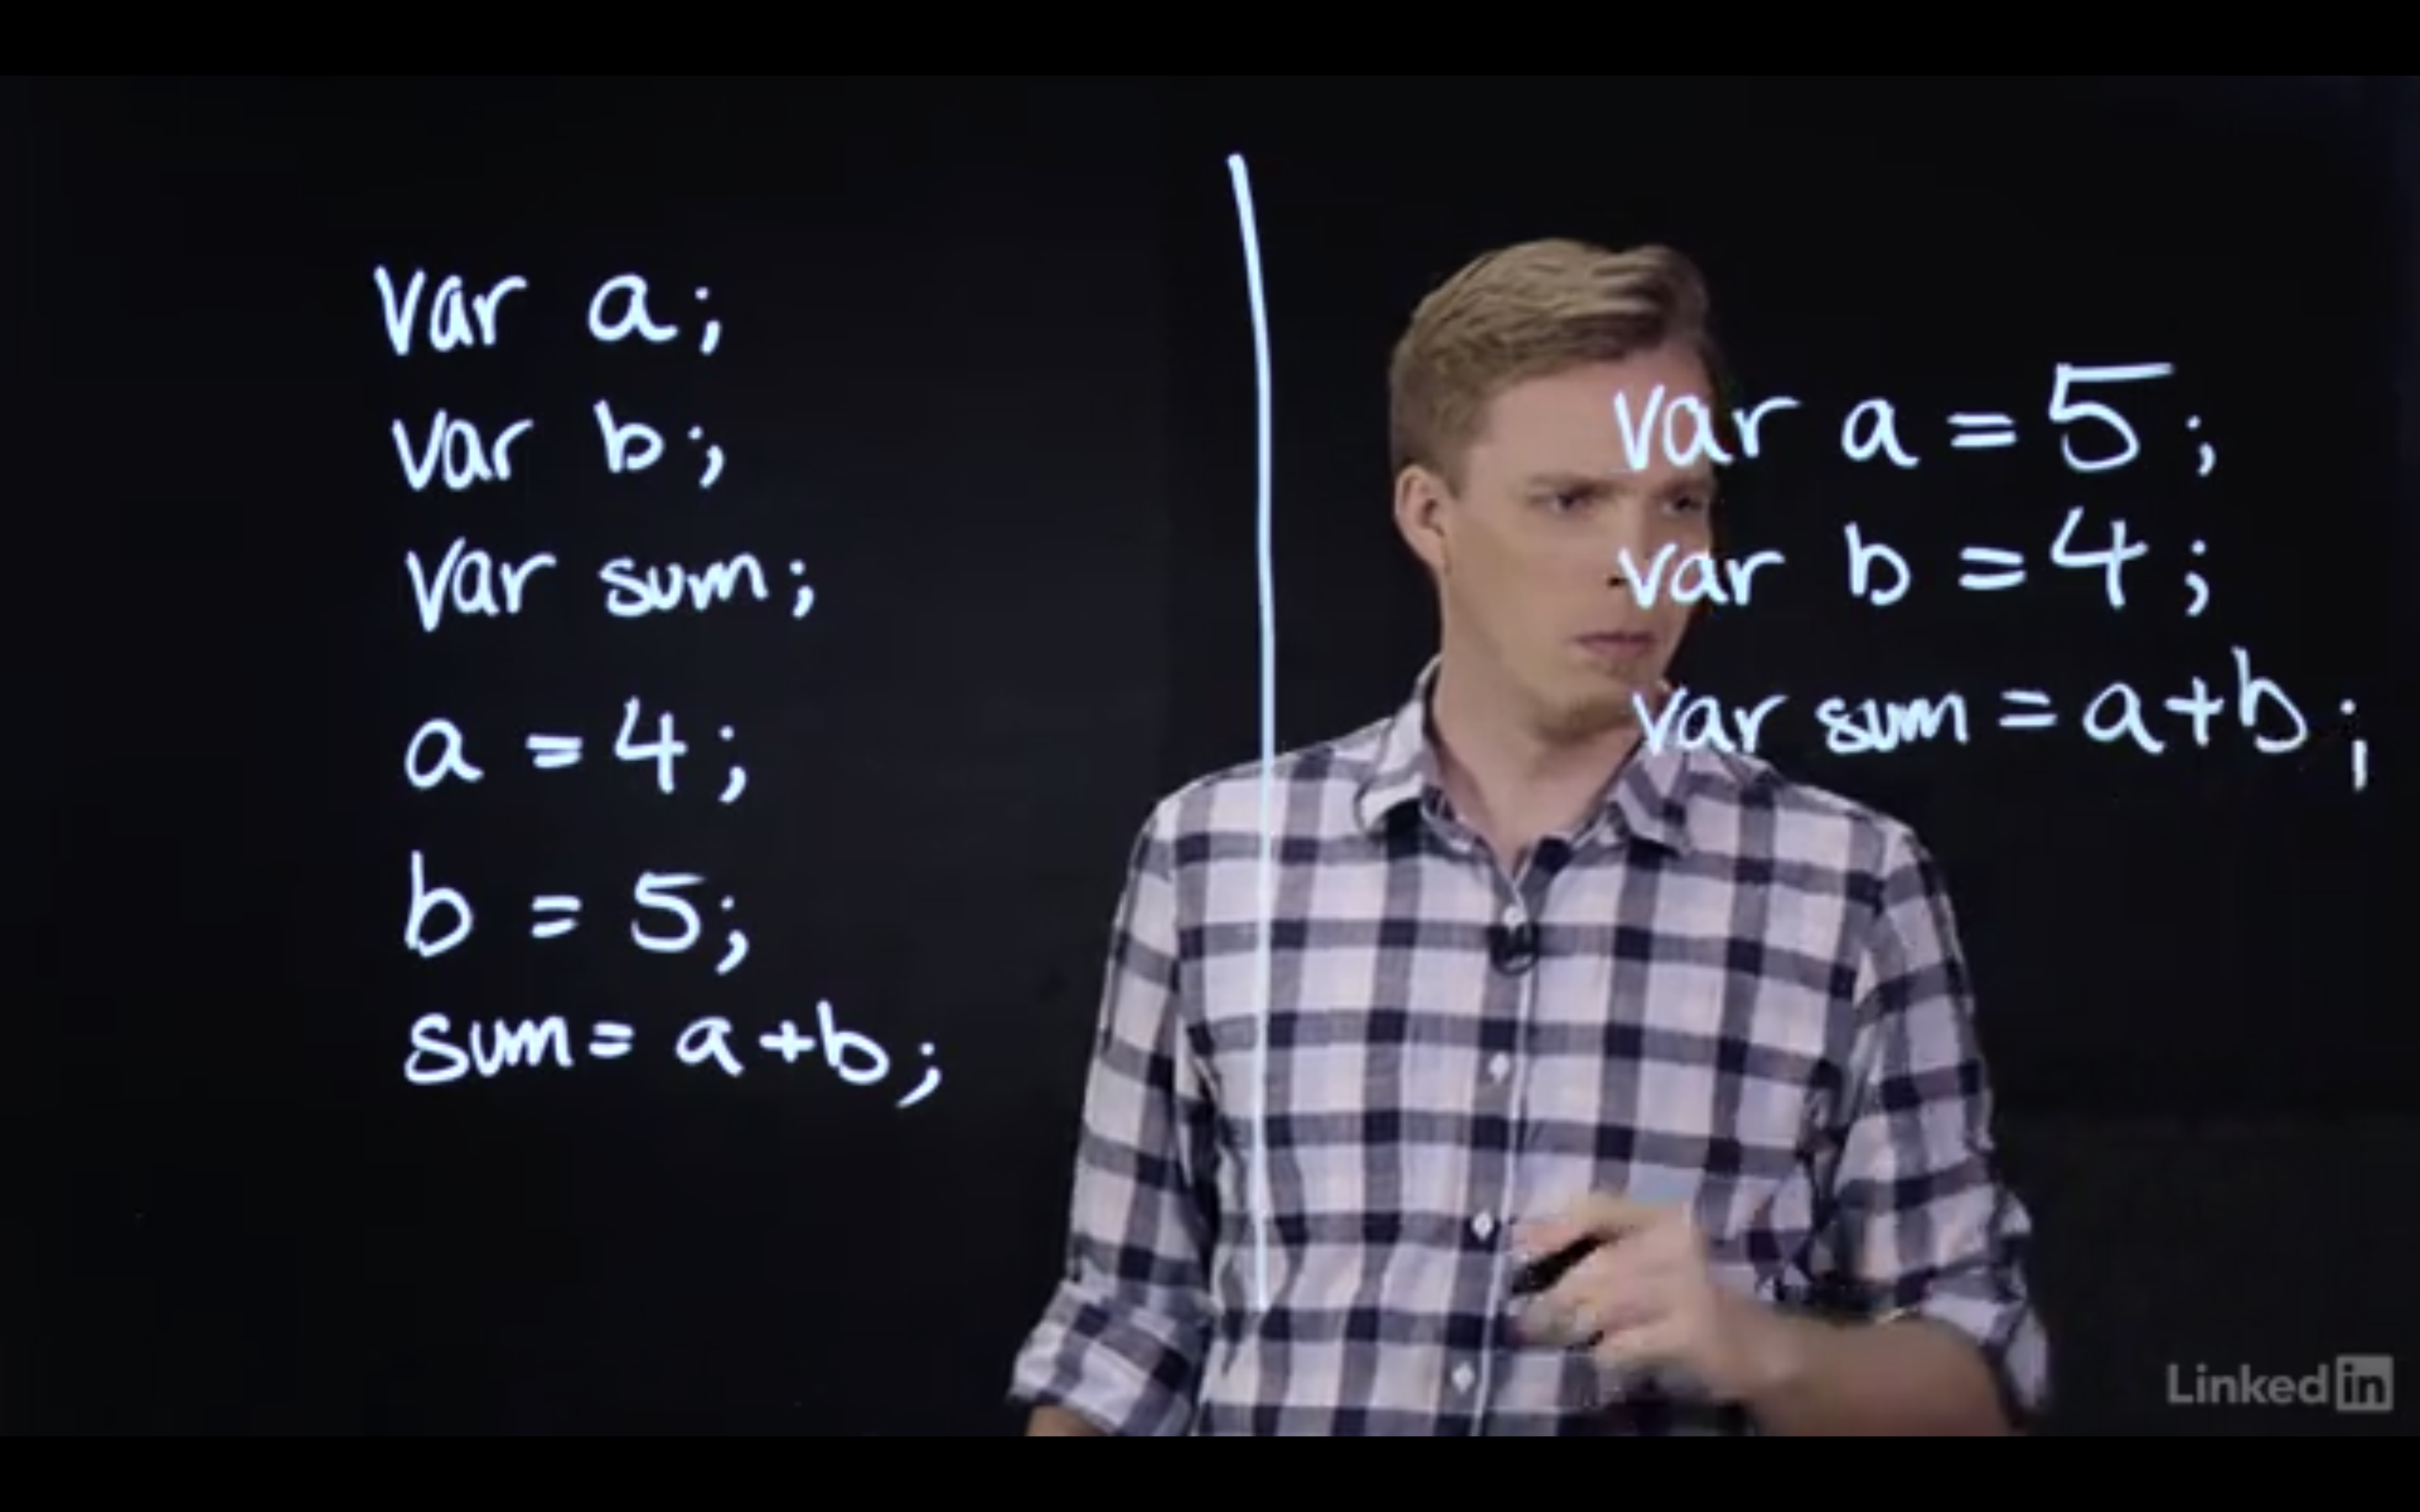 var a;
var b;
var sum;
a = 4;
b = 5;
sum = a+b;
var a = 5;
var b = 4;
var sum = a+b;
Linked in